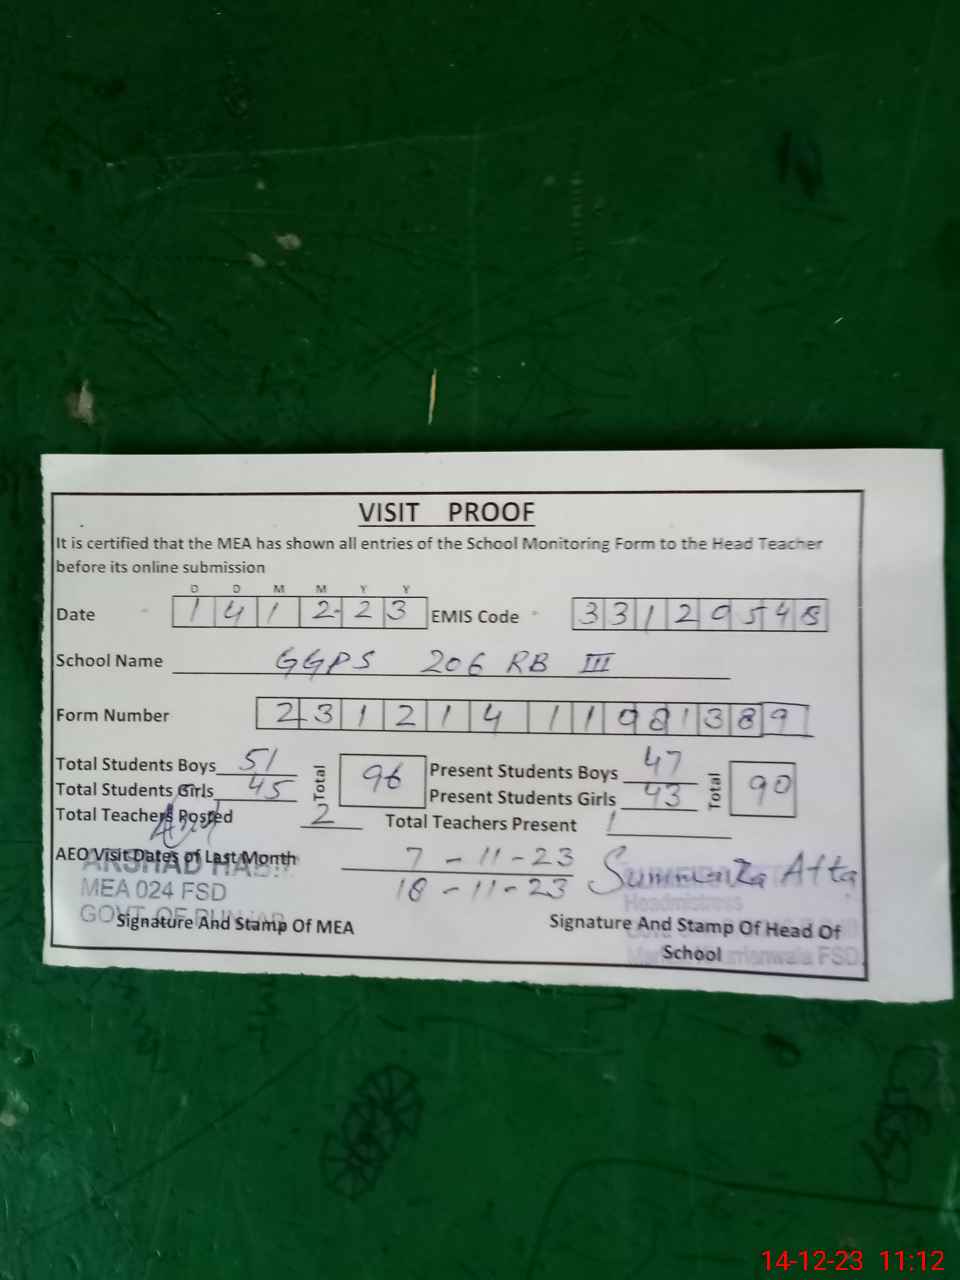 VISIT PROOF
It is certified that the MEA has shown all entries of the School Monitoring Form to the Head Teacher
before its online submission
D D M M Y Y
Date 1 4 1 2 2 3 EMIS Code 3 3 1 2 0 5 4 8
School Name GGPS 206 RB III
Form Number 2 3 1 2 1 4 1 1 0 8 1 3 8 9
Total Students Boys 51 Total 96 Present Students Boys 47 Total 90
Total Students Girls 45 Present Students Girls 43
Total Teachers Posted 2 Total Teachers Present 1
AEO Visit Dates of Last Month 7-11-23
18-11-23
ARSHAD HABIB
MEA 024 FSD
GOVT. OF PUNJAB
Signature And Stamp Of MEA
Atta
Headmistress
Signature And Stamp Of Head Of
School
FSD
14-12-23 11:12